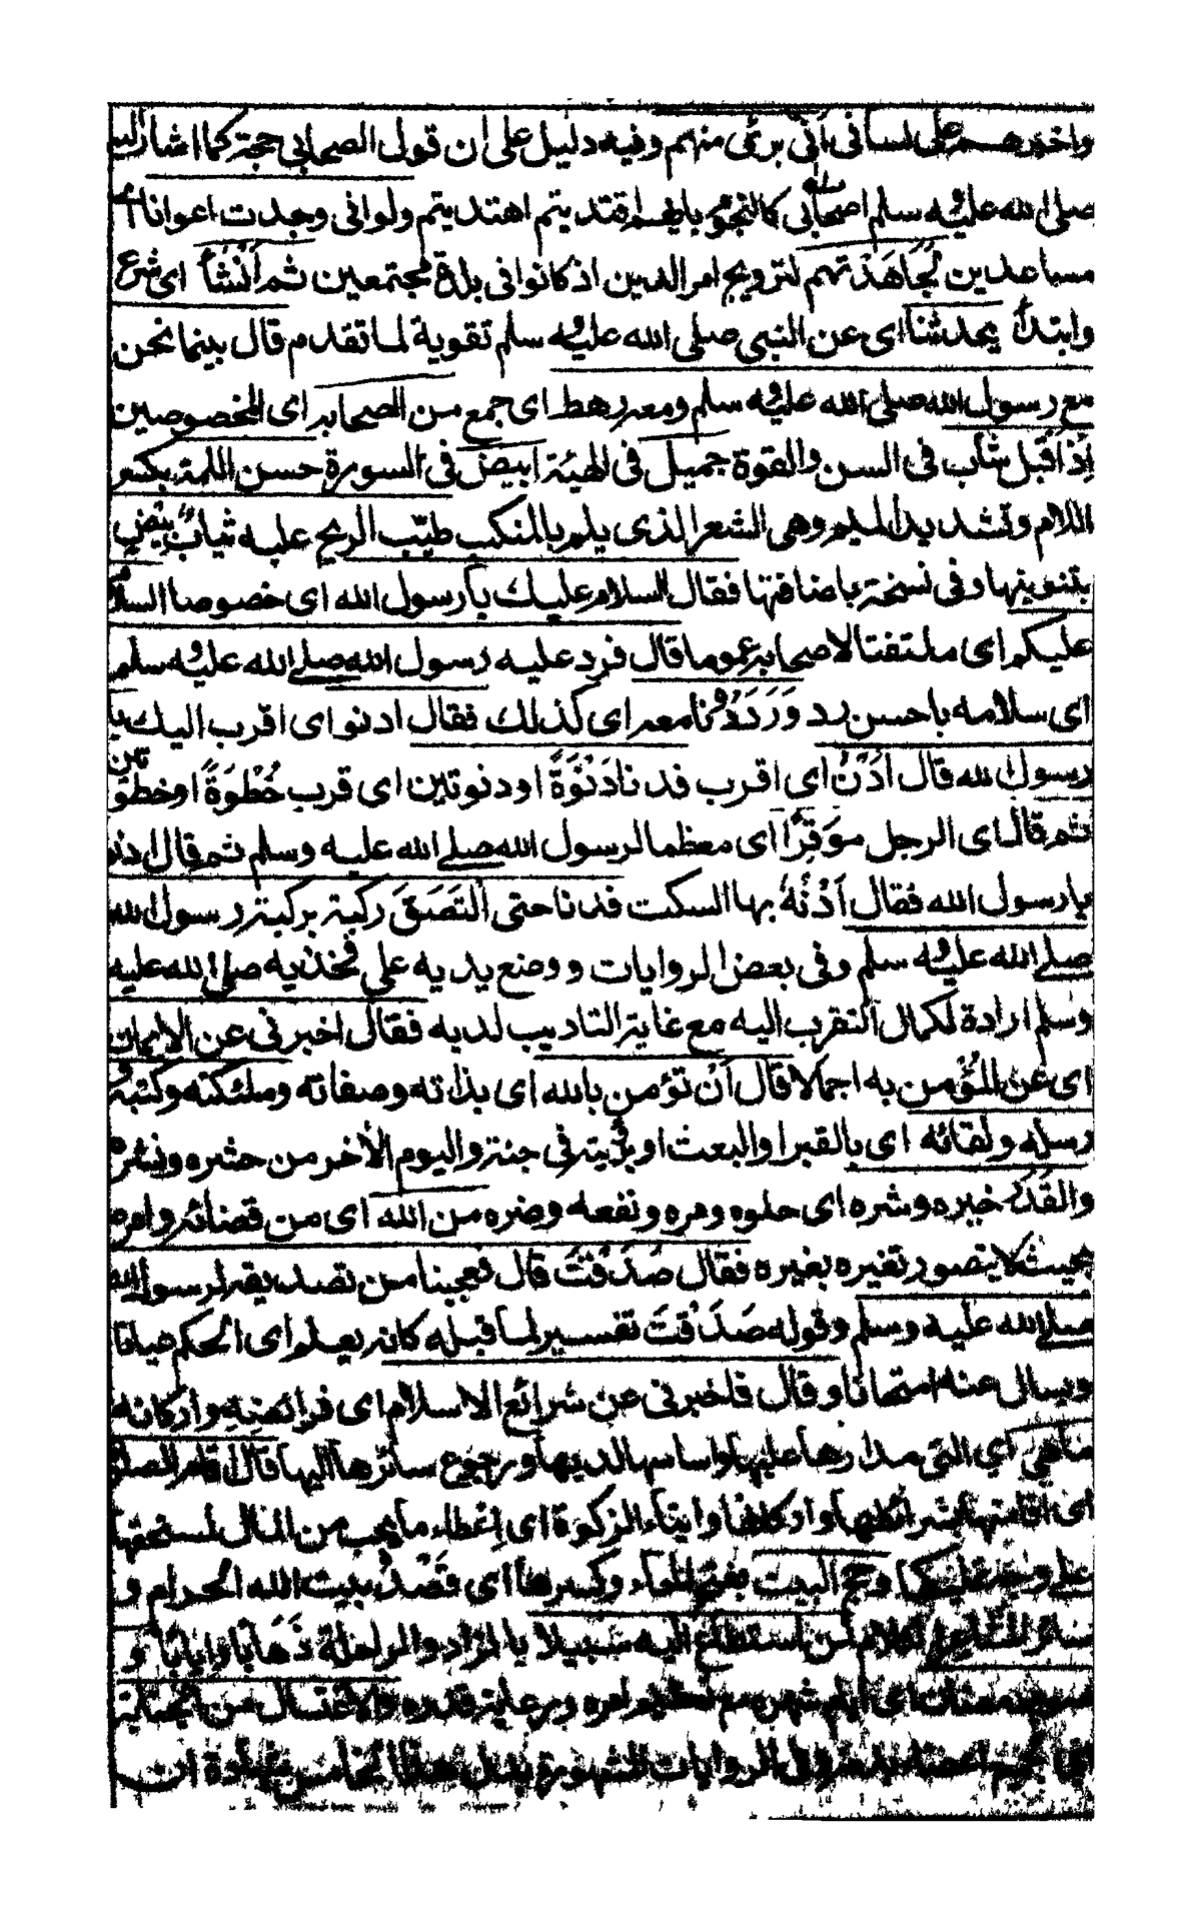 واخبرهم على لساني أني برئ منهم وفيه دليل على ان قول الصحابي حجة كما اشار اليه
صلى الله عليه وسلم اصحابي كالنجوم بايهم اقتديتم اهتديتم ولو اني وجدت اعوانا اى
مساعدين لجاهدتهم لترويج امر الدين اذ كانوا في بلدة مجتمعين ثم أنشأ اى شرع
وابتدأ يحدثنا اى عن النبي صلى الله عليه وسلم تقوية لما تقدم قال بينما نحن
مع رسول الله صلى الله عليه وسلم ومعه رهط اى جمع من الصحابه اى المخصوصين
إذ أقبل شاب في السن والقوة جميل في الهيئة ابيض في السورة حسن اللمة بكسر
اللام وتشديد الميم وهي الشعر الذى يلم بالمنكب طيّب الريح عليه ثيابٌ بيض
بتنوينها وفي نسخة باضافتها فقال السلام عليك يا رسول الله اى خصوصا السلام
عليكم اى ملتفتا لاصحابه عموما قال فرد عليه رسول الله صلى الله عليه وسلم
اى سلامه باحسن رد وَرَدَدْنا معه اى كذلك فقال ادنو اى اقرب اليك يا
رسول الله قال أدْنُ اى اقرب فدنا دَنْوَةً او دنوتين اى قرب خُطْوَةً او خطوتين
ثم قال اى الرجل موَقِرًا اى معظما لرسول الله صلى الله عليه وسلم ثم قال ادنو
يا رسول الله فقال أدْنُهْ بها السكت فدنا حتى ألتَصَقَ ركبته بركبة رسول الله
صلى الله عليه وسلم وفي بعض الروايات ووضع يديه على فخذيه صلى الله عليه
وسلم ارادة لكمال التقرب اليه مع غاية التاديب لديه فقال اخبرني عن الايمان
اى عن المؤمن به اجمالا قال أن تؤمن بالله اى بذاته وصفاته وملئكته وكتبه و
رسله ولقائه اى بالقبر او البعث او برؤيته في جنته واليوم الأخر من حشره ونشره
والقدر خيره وشره اى حلوه ومره ونفعه وضره من الله اى من قضائه وامره
بحيث لا يتصور تغيره بغيره فقال صَدَقْتَ قال فعجبنا من تصديقه لرسول الله
صلى الله عليه وسلم وقوله صَدَقْتَ تفسير لما قبله كانه يعلم اى الحكم عيانا
ويسال عنه امتحانا وقال فاخبرني عن شرائع الاسلام اى فرائضه واركانه
ماهي اى التي مدارها عليها واساسها لديها ورجوع سائرها اليها قال اقام الصلوة
اى اقامتها بشرائطها واركانها وايتاء الزكوة اى اعطاء ما يجب من المال لمستحقها
على وجه وحج البيت بفتح الحاء وكسرها اى قَصْدُ بيت الله الحرام و
سائر المشاعر لمن استطاع اليه سبيلا بالزاد والراحلة ذهابا وايابا و
صوم رمضان اى ايام شهره مع تعظيم امره ورعاية قدره والاغتسال من الجنابة
اى جميع اعضاء بدنه وفي الروايات المشهورة بدل هذا الخامس شهادة ان